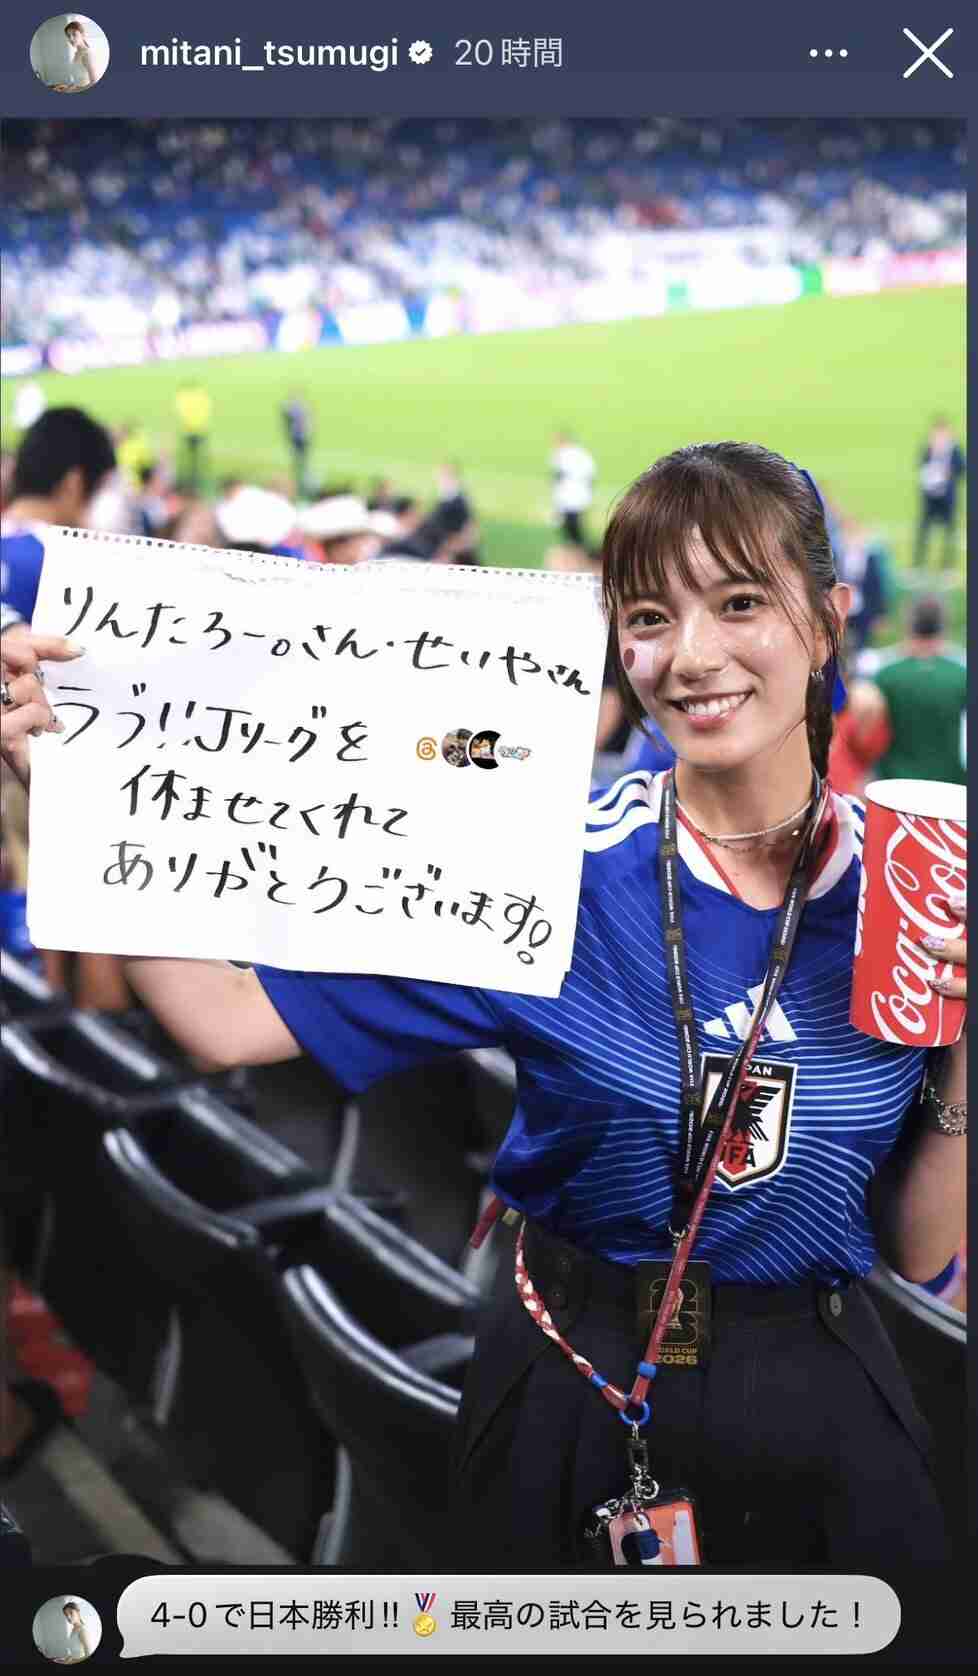 mitani_tsumugi 20時間
りんたろー。さん・せいやさん
ラブ!!Jリーグを
休ませてくれて
ありがとうございます!
Coca-Cola
JAPAN
JFA
WORLD CUP
2026
4-0で日本勝利!!🏅最高の試合を見られました！